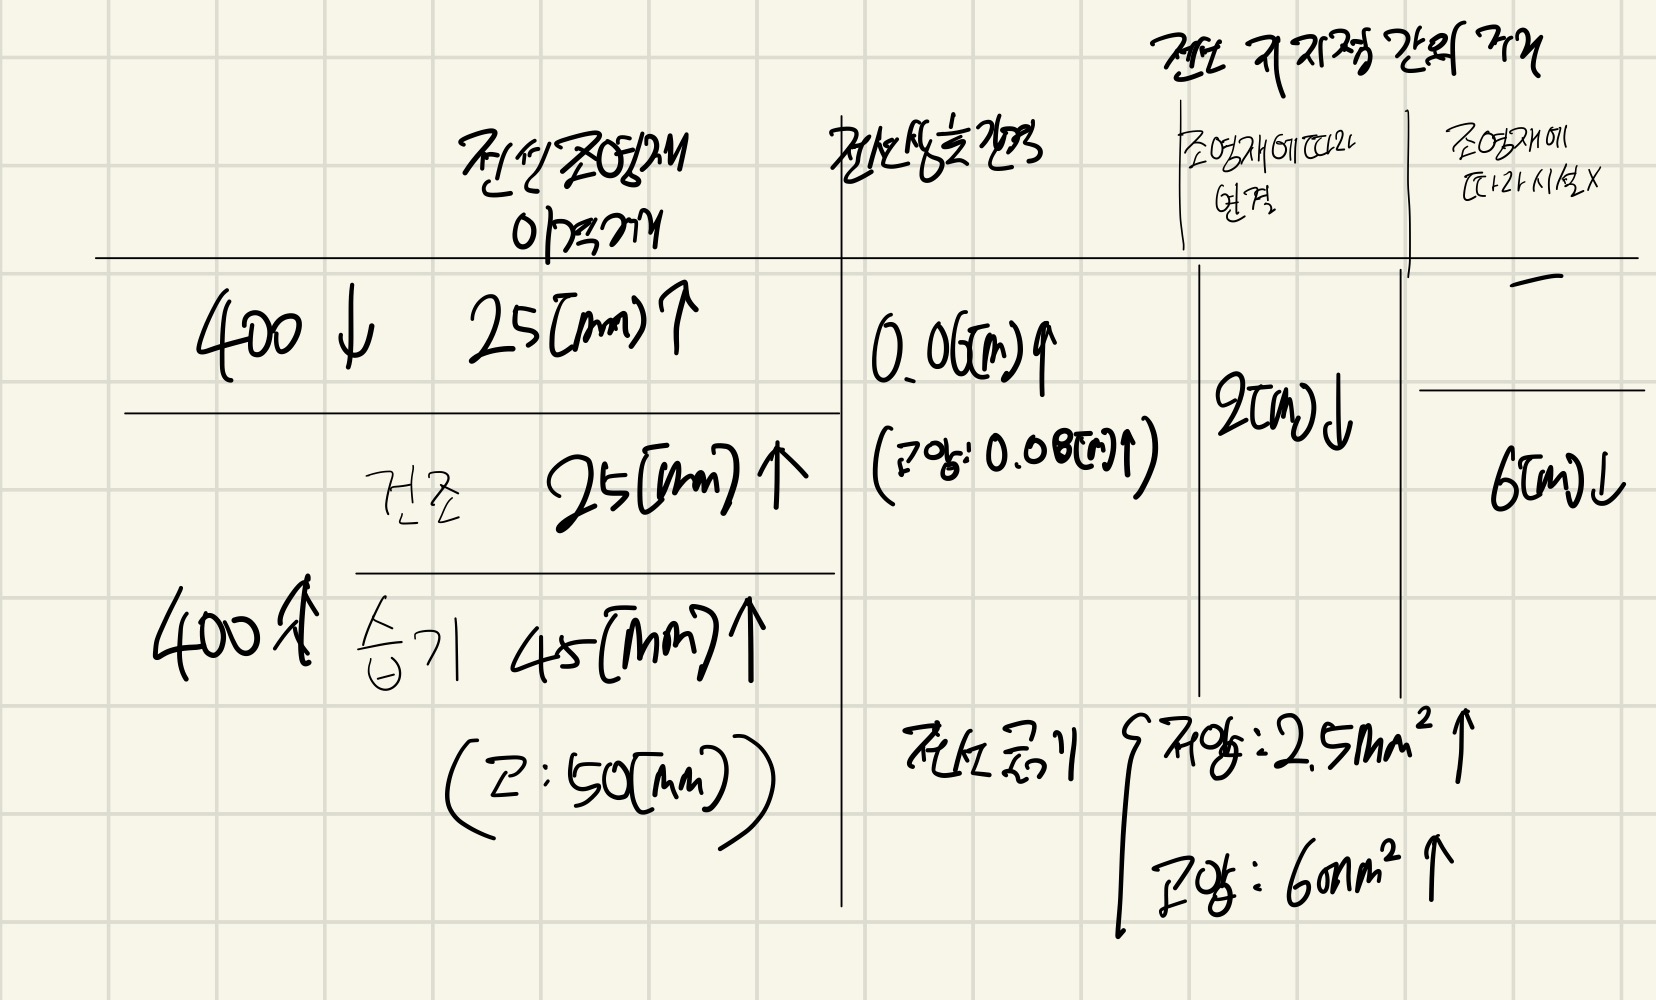 전선 지지점 간의 거리
전선 조영재
이격거리
전선 상호 간격
조영재에 따라
연결
조영재에
따라 시설 X
400 ↓ 25[mm] ↑
0.06[m] ↑
—
2[m] ↓
(고압: 0.08[m] ↑)
건조 25[mm] ↑
6[m] ↓
400 ↑ 습기 45[mm] ↑
(고: 50[mm])
전선 굵기
저압: 2.5mm² ↑
고압: 6mm² ↑